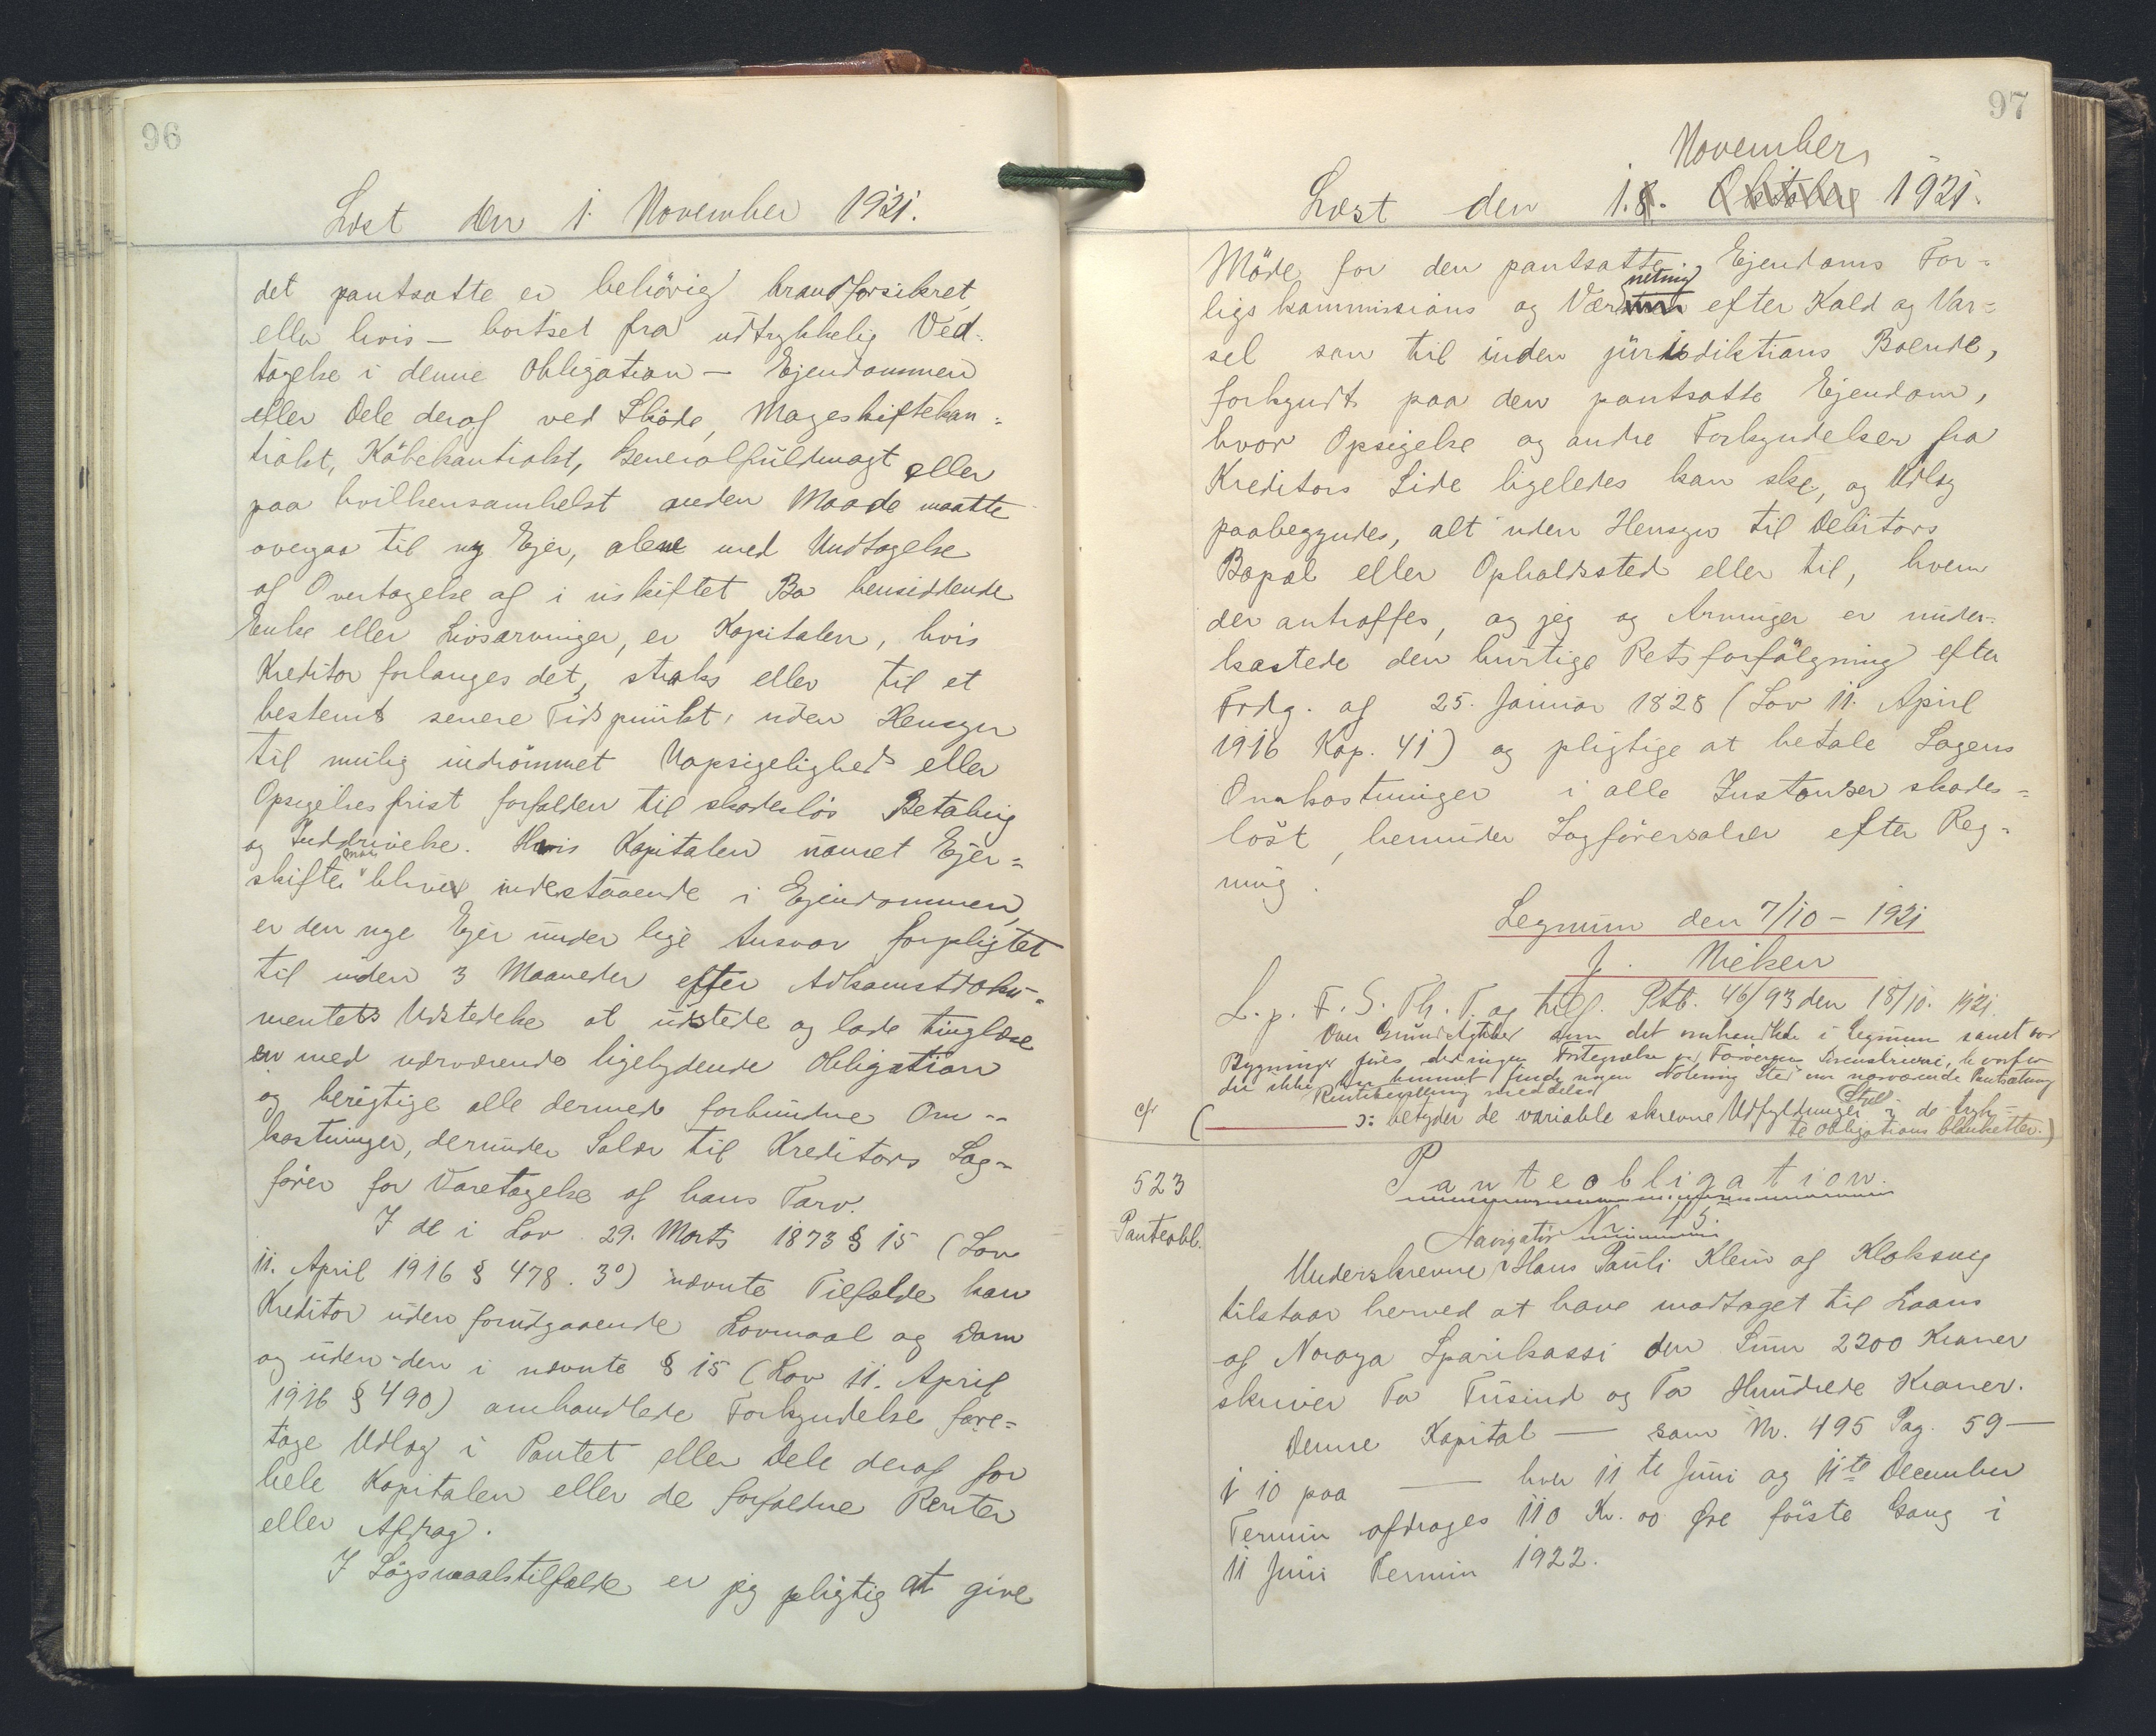 96
Læst den 1. November 1921.
det pantsatte er behörig brandforsikret,
eller hvis – bortset fra udtrykkelig Ved-
tagelse i denne Obligation – Ejendommen
eller Dele deraf ved Skøde, Mageskiftekon=
trakt, Köbekontrakt, Generalfuldmagt eller
paa hvilkensomhelst anden Maade maatte
overgaa til ny Ejer, alene med Undtagelse
af Overtagelse af i uskiftet Bo hensiddende
Enke eller Livsarvinger, er Kapitalen, hvis
Kreditor forlanges det, straks eller til et
bestemt senere Tidspunkt, uden Hensyn
til mulig indrömmet Uopsigelighed eller
Opsigelsesfrist forfalden til skadeslös Betaling
og Inddrivelse. Hvis Kapitalen uanset Ejer=
skifte maa blive indestaaende i Ejendommen,
er den nye Ejer under lige Ansvar forpligtet
til inden 3 Maaneder efter Adkomstdoku=
mentets Udstedelse at udstede og lade tinglæse
en med nærværende ligelydende Obligation
og berigtige alle dermed forbundne Om-
kostninger, derunder Salær til Kreditors Sag-
förer for Varetagelse af hans Tarv.
I de i Lov 29. Marts 1873 § 15 (Lov
11. April 1916 § 478. 3°) nævnte Tilfælde kan
Kreditor uden forudgaaende Lovmaal og Dom
og uden den i nævnte § 15 (Lov 11. April
1916 § 490) omhandlede Forkyndelse fore=
tage Udlæg i Pantet eller Dele deraf for
hele Kapitalen eller de forfaldne Renter
eller Afdrag.
I Søgsmaalstilfælde er jeg pligtig at give
97
November
Læst den 1.8. Oktober 1921.
Möde for den pantsatte Ejendoms For=
ligskommissions og Værneting efter Kald og Var=
sel som til inden jurisdiktions Boende,
forkyndt paa den pantsatte Ejendom,
hvor Opsigelse og andre Forkyndelser fra
Kreditors Side ligeledes kan ske, og Udlæg
paabegyndes, alt uden Hensyn til Debitors
Bopæl eller Opholdssted eller til, hvem
der antræffes, og jeg og Arvinger er under-
kastede den hurtige Retsforfölgning efter
Frdg. af 25. Januar 1828 (Lov 11. April
1916 Kap. 41) og pligtige at betale Sagens
Omkostninger i alle Instanser skades=
löst, herunder Sagförersalær efter Reg=
ning.
Legnum den 7/10 – 1921
J. Nielsen
L. p. F. S. Th. T. og tilf. Ptb. 46/93 den 18/10. 1921.
Over Grundstykker som det omhandlede i Legnum samt
Bygninger föres der ingen Fortegnelse hvorfor
der ikke har kunnet finde nogen Notering Sted om nærværende Pantsætning
Rentibestilling meddelst
cfr ( ɔ: betyder de variable skrevne Udfyldninger Sted i de tryk=
te Obligations blanketter.)
523
Panteobl.
Panteobligation.
Nr. 45.
Navigatör
Underskrevne Hans Pauli Klein af Klaksvig
tilstaar herved at have modtaget til Laans
af Noroya Sparikassi den Sum 2200 Kroner
skriver To Tusind og To Hundrede Kroner.
Denne Kapital — som Nr. 495 Pag. 59 —
i 10 paa — hver 11te Juni og 11te December
Termin afdrages 110 Kr. 00 Øre förste Gang i
11 Juni Termin 1922.